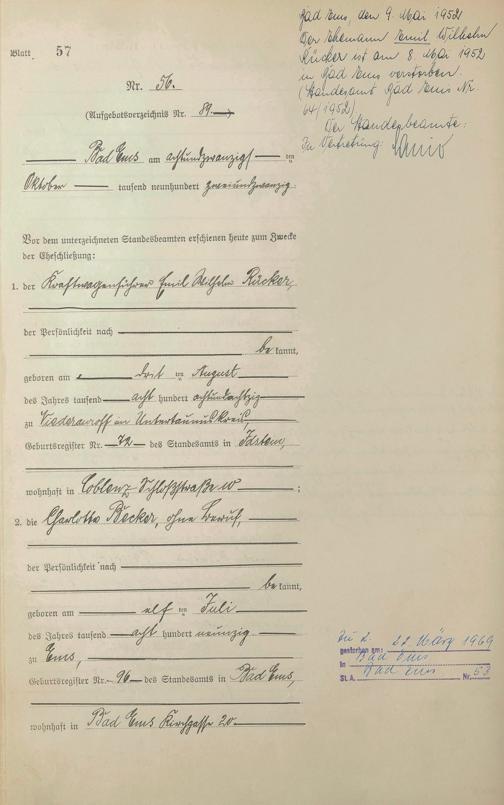 Blatt 57
Nr. 56.
(Aufgebotsverzeichnis Nr. 89.)
Bad Ems am achtundzwanzigsten
Oktober tausend neunhundert zweiundzwanzig.
Vor dem unterzeichneten Standesbeamten erschienen heute zum Zwecke
der Eheschließung:
1. der Kraftwagenführer Emil Wilhelm Rücker,
der Persönlichkeit nach
be kannt,
geboren am dritten August
des Jahres tausend acht hundert achtundachtzig
zu im Untertaunuskreis,
Geburtsregister Nr. 72 des Standesamts in Idstein,
wohnhaft in Coblenz Schloßstraße ;
2. die Charlotte Becker, ohne Beruf,
der Persönlichkeit nach
be kannt,
geboren am elften Juli
des Jahres tausend acht hundert neunzig
zu Ems,
Geburtsregister Nr. 96 des Standesamts in Bad Ems,
wohnhaft in Bad Ems Kirchgasse 20
Bad Ems, den 9. Mai 1952
Der Ehemann Emil Wilhelm
Rücker ist am 8. Mai 1952
in Bad Ems verstorben.
(Standesamt Bad Ems Nr.
64/1952)
Der Standesbeamte:
In Vertretung:
Zu 2. 22. März 1969
gestorben am:
in Bad Ems
St. A. Bad Ems Nr. 53